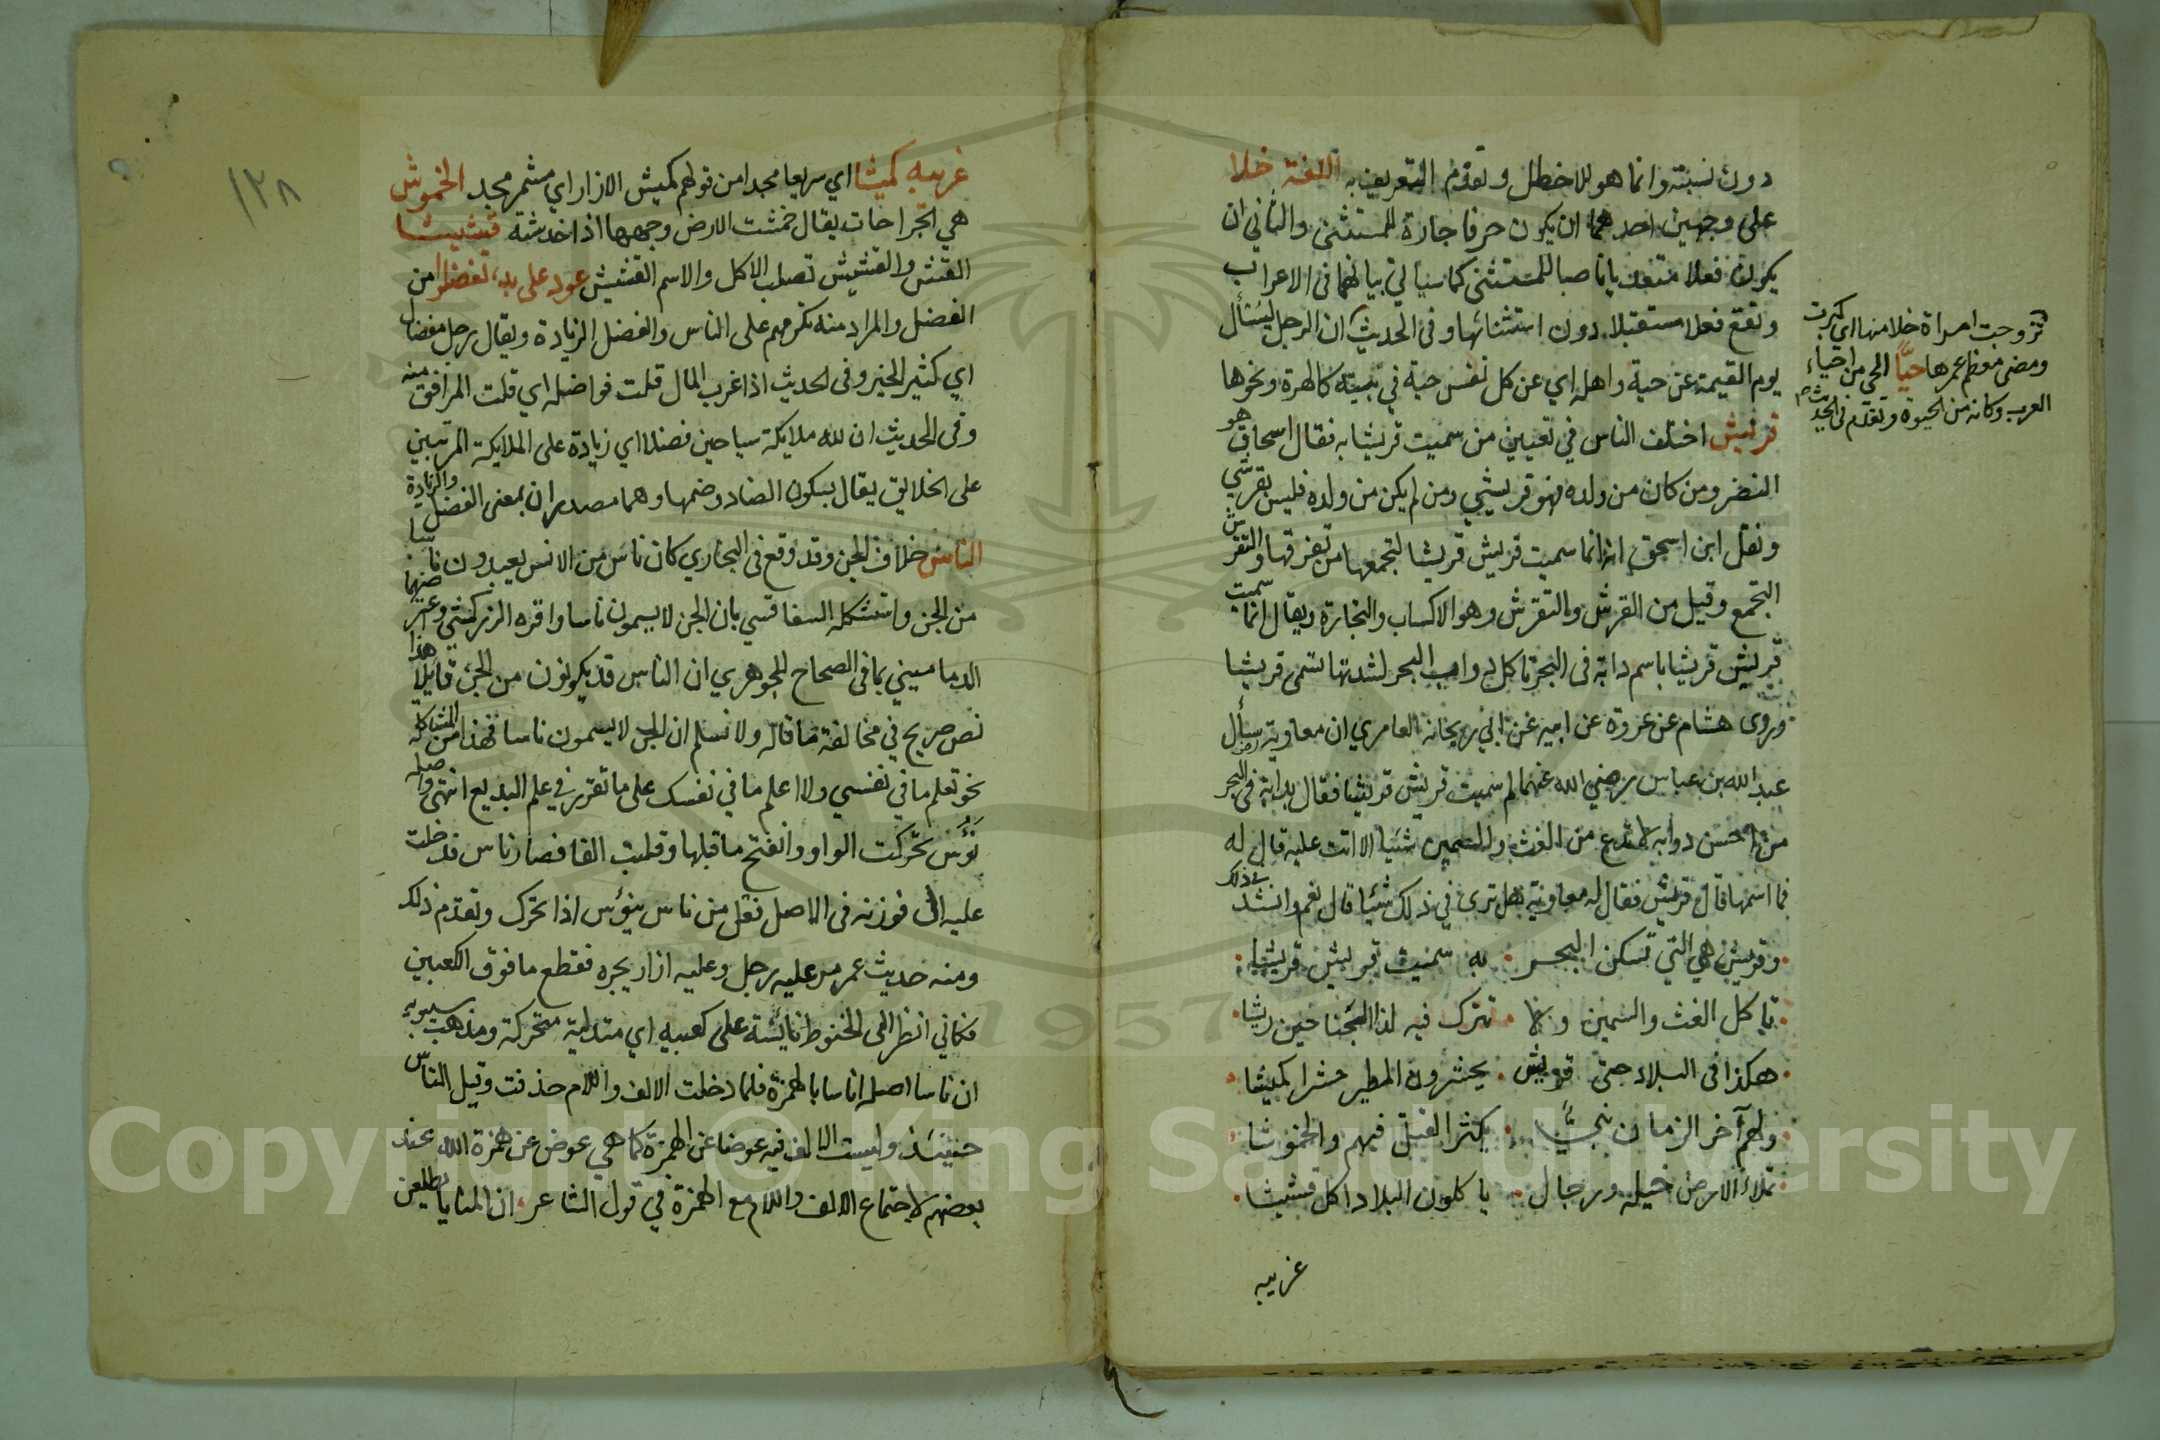 دون نسبته وانما هو للاخطل وتقدم التعريف به اللغة خلا
على وجهين احدهما ان يكون حرفا جارة للمستثنى والثاني ان
يكون فعلا متعديا ناصبا للمستثنى كما سياتي بيانهما في الاعراب
وتقع فعلا مستقبلا دون استثنائها وفي الحديث ان الرجل ليسئل
يوم القيمة عن حية اهله اي عن كل نفس حية في بيته كالهرة ونحوها
قريش اختلف الناس في تعيين من سميت قريشا به فقال اسحاق هو
النضر ومن كان من ولده فهو قريشي ومن لم يكن من ولده فليس بقرشي
ونقل ابن اسحق انما سميت قريش قريشا لتجمعها من تفرقها والتقرش
التجمع وقيل من القرش والتقرش وهو الاكساب والتجارة ويقال انما سميت
قريش قريشا باسم دابة في البحر تاكل دواب البحر لشدتها تسمى قريشا
وروى هشام عن عروة عن ابيه عن ابي ريحانة العامري ان معاوية سأل
عبد الله بن عباس رضي الله عنهما لم سميت قريش قريشا فقال بدابة في البحر
من احسن دوابه لا تدع من الغث والسمين شيا الا اتت عليه قال له
فما اسمها قال قريش فقال له معاوية هل تروى في ذلك شيئا قال نعم وانشد في ذلك
وقريش هي التي تسكن البحر به سميت قريش قريشا
تاكل الغث والسمين ولا تترك فيه لذا الجناحين ريشا
هكذا في البلاد حتى قريش يحشرون المطير حشرا كميشا
ولهم آخر الزمان نبيّا يكثر القتل فيهم والخموشا
تملاء الارض خيله ورجال ياكلون البلاد اكل قشيشا
غريبه
تزوجت امراة خلا منها اي كبرت
ومضى معظم عمرها حيّا الحي من احياء
العرب وكانه من الحيوة وتقدم في الحديث
١٢٨
غريبه كميشا اي سريعا مجدا من قولهم كميش الازار اي مشمر مجد الخموش
هي الجراحات يقال خمشت الارض وجهها اذا خدشته قشيشا
القش والقشيش تصلب الاكل والاسم القشيش عود على بدء تفضلوا من
الفضل والمراد منه تكرمهم على الناس والفضل الزيادة ويقال رجل مفضال
اي كثير الخير وفي الحديث اذا غرب المال قلت فواضله اي قلت المرافق منه
وفي الحديث ان لله ملايكة سياحين فضلا اي زيادة على الملايكة المرتبين
على الخلايق يقال بسكون الضاد وضمها وهما مصدران بمعنى الفضل والزيادة
الناس خلاف الجن وقد وقع في البخاري كان ناس من الانس يعبدون ناسا
من الجن واستشكله السفاقسي بان الجن لا يسمون ناسا واقره الزركشي وغيرهما
الدماميني بما في الصحاح للجوهري ان الناس قد يكونون من الجن قايلا هذا
نص صريح في مخالفة ما قاله ولا نسلم ان الجن لا يسمون ناسا فهذا من المشاكلة
نحو تعلم ما في نفسي ولا اعلم ما في نفسك على ما تقرر في علم البديع انتهى واصله
نَوَس تحركت الواو وانفتح ما قبلها وقلبت الفا فصار ناس فدخلت
عليه ال فوزنه في الاصل فعل من ناس ينؤس اذا تحرك وتقدم ذلك
ومنه حديث عمر مر عليه رجل وعليه ازار يجره فقطع ما فوق الكعبين
فكاني انظر الى الخنوط نائسة على كعبيه اي متدلية متحركة ومذهب سيبويه
ان ناسا اصله اناسا بالهمزة فلما دخلت الالف واللام حذفت وقيل الناس
حينئذ وليست الالف فيه عوضا عن الهمزة كما هي عوض عن همزة الله عند
بعضهم لاجتماع الالف واللام مع الهمزة في قول الشاعر ان المنايا يطلعن